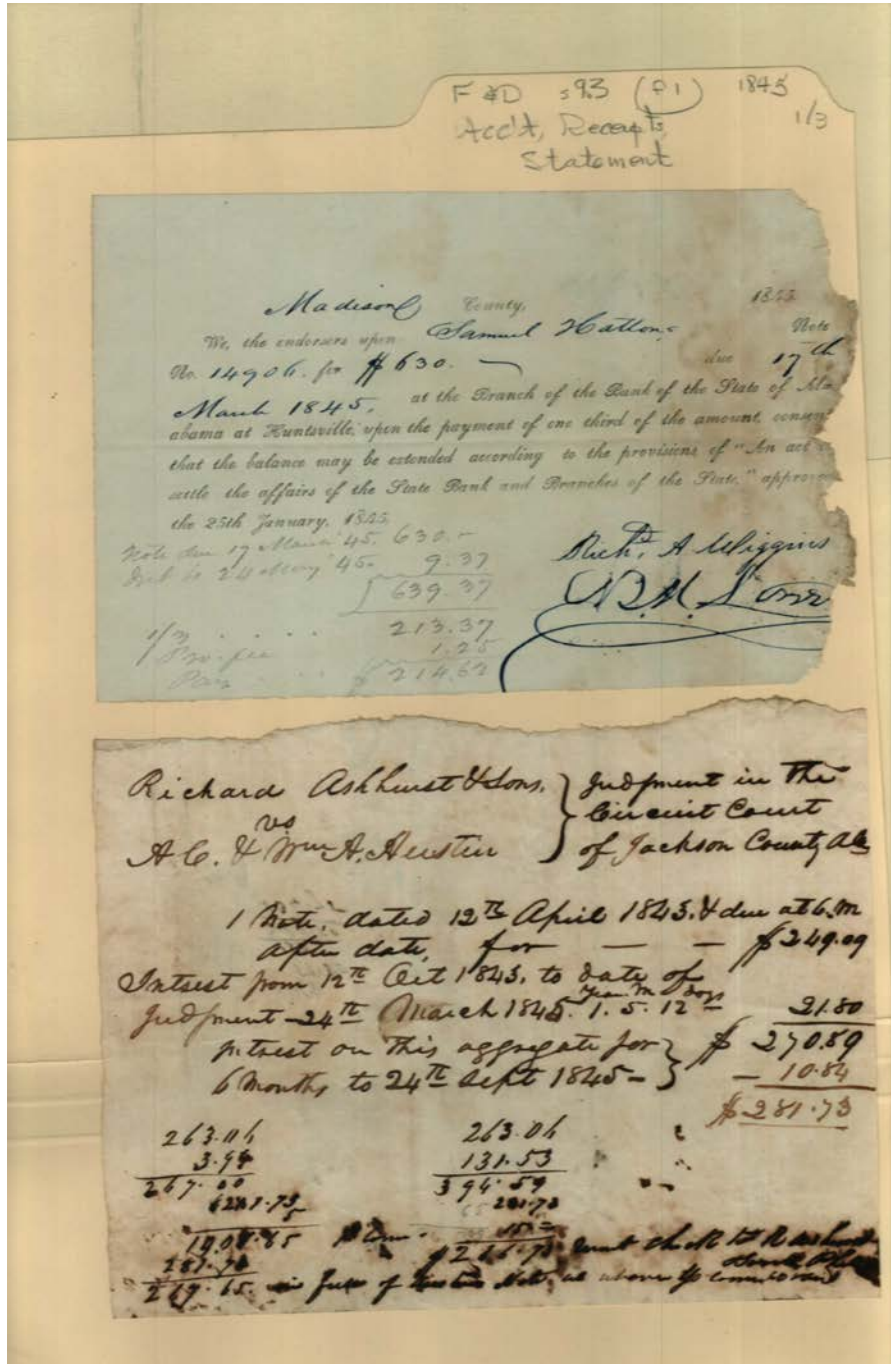 F & D 593 (P1) 1845
1/3
Acc't, Receipts,
Statement
Madison County, 1845
We, the endorsers upon Samuel Hatton Note
No. 14906. for $630. due 17th
March 1845, at the Branch of the Bank of the State of Ala-
abama at Huntsville, upon the payment of one third of the amount, consent
that the balance may be extended according to the provisions of "An act to
settle the affairs of the State Bank and Branches of the State," approved
the 25th January, 1845.
Note due 17 March 45. 630.-
24 May 45- 9.37
639.37
1/3 . . . . 213.37
fee 1.25
Pay $ 214.62
Richd. A Wiggins
Richard Ashhurst & Sons,
vs
A. C. & Wm A. Austin
Judgment in the
Circuit Court
of Jackson County Ala
1 Note, dated 12th April 1843. & due at 6. m
after date, for — — $249.09
Intrest from 12th Oct 1843. to date of
Judgment 24th March 1845. Year 1. M 5. Days 12 21.80
intrest on this aggregate for $ 270.89
6 Months to 24th Sept 1845 - 10.84
$ 281.73
263.06 263.06
3.94 131.53
267.00 394.59
281.73 281.73
5 15
1408.65
281.73 $266.73
267.65 in full of Note, as above